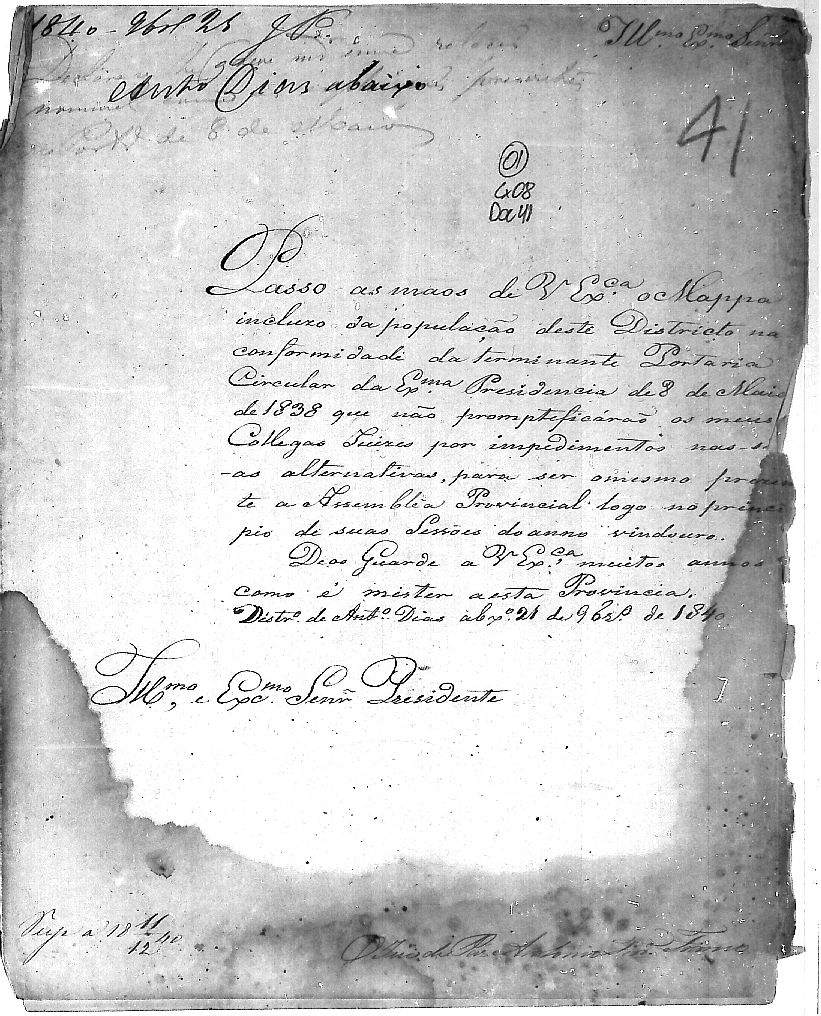 1840 - 9br.o 21 J. P.
Illmo. Exmo. Senr.
Declare
Anto. Dias abaixo
Port.a de 8 de Maio
41
01
Cx 08
Doc 41
Passo as maos de V Exca. o Mappa
incluzo da população deste Districto na
conformidade da terminante Portaria
Circular da Exma. Presidencia de 8 de Maio
de 1838 que não promptificárão os meus
Collegas Juizes por impedimentos nas su-
-as alternativas, para ser omesmo prezen
te a Assemblèa Provincial logo no princi
pio de suas Sessões do anno vindouro.
Deos Guarde a V Exca. muitos annos
como é mister aesta Provincia.
Distro. de Anto. Dias abxo. 21 de 9bro. de 1840
Illmo. e Excmo. Senr. Presidente
O Juis de Paz